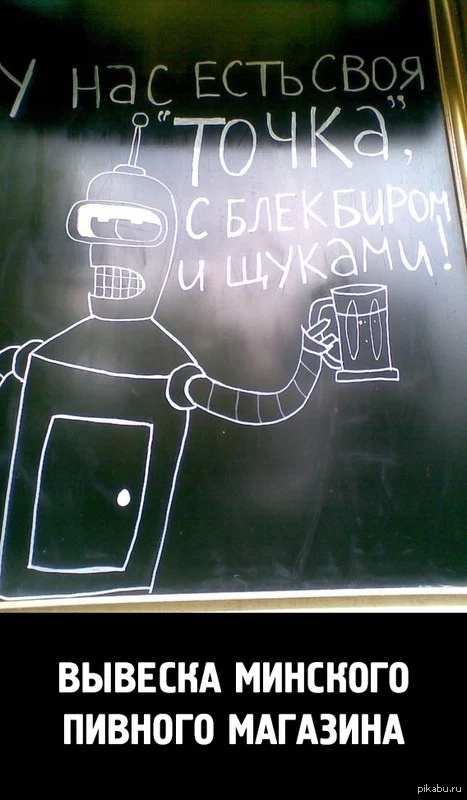 У нас есть своя
"точка",
с блекбиром
и щуками!
ВЫВЕСКА МИНСКОГО
ПИВНОГО МАГАЗИНА
pikabu.ru